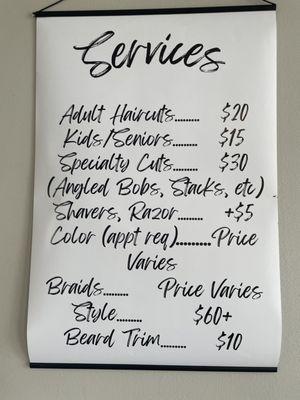 Services
Adult Haircuts......... $20
Kids/Seniors......... $15
Specialty Cuts......... $30
(Angled Bobs, Stacks, etc)
Shavers, Razor......... +$5
Color (appt req)......... Price
Varies
Braids......... Price Varies
Style......... $60+
Beard Trim......... $10